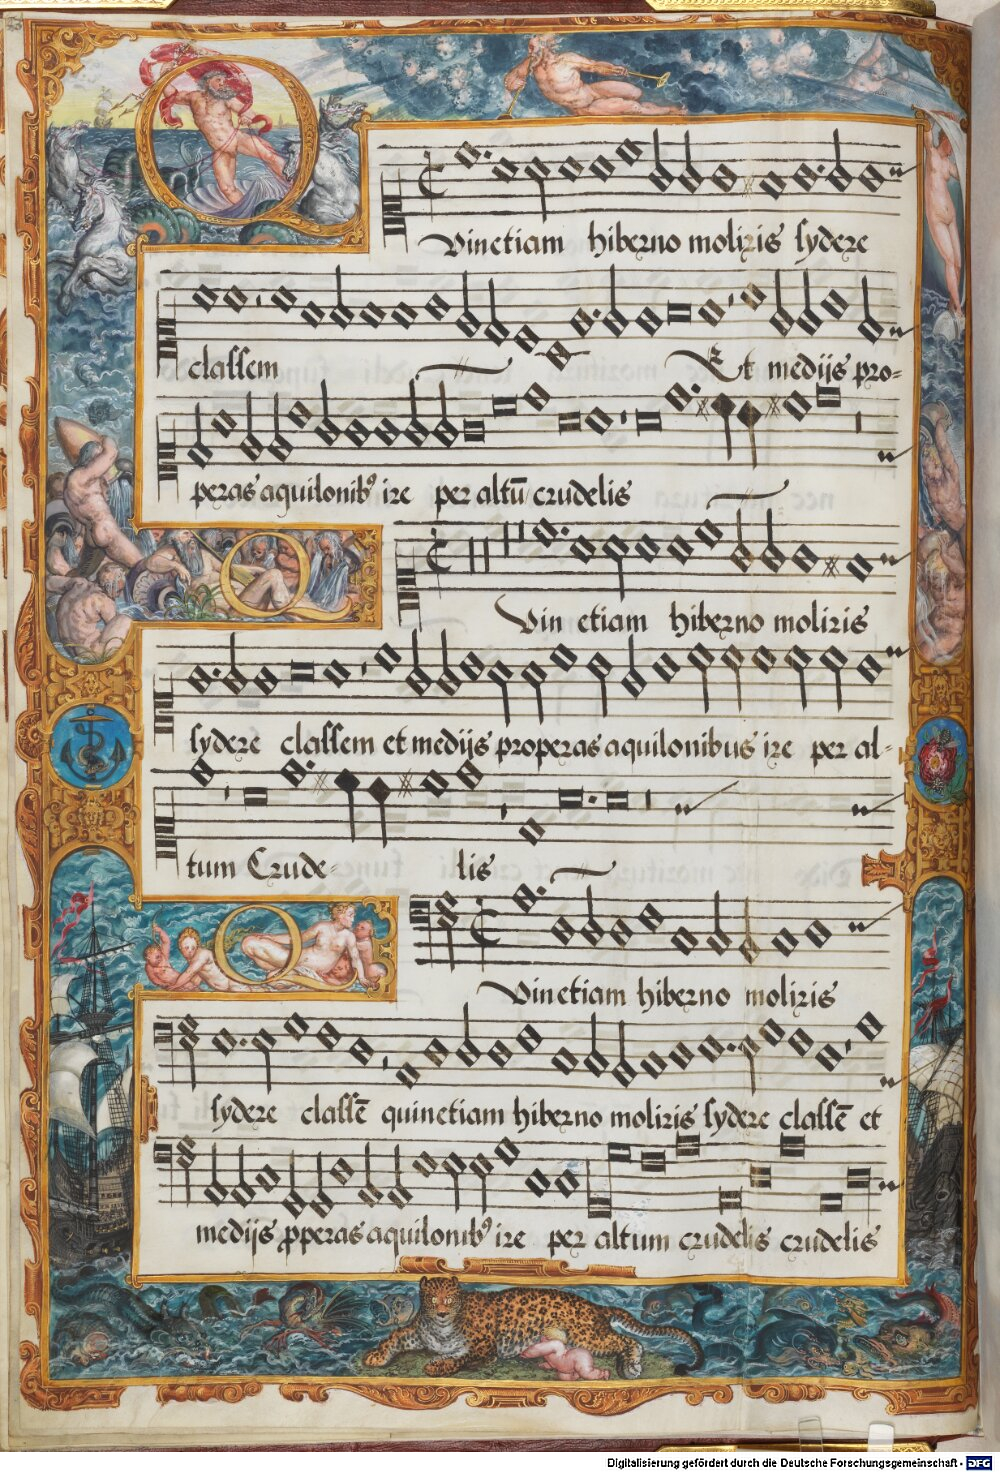 Quinetiam hiberno moliris sydere
classem Et medijs pro=
peras aquilonibꝰ ire per altū crudelis
Quin etiam hiberno moliris
sydere classem et medijs properas aquilonibus ire per al-
tum Crude= lis
Quinetiam hiberno moliris
sydere classē quinetiam hiberno moliris sydere classē et
medijs ꝓperas aquilonibꝰ ire per altum crudelis crudelis
Digitalisierung gefördert durch die Deutsche Forschungsgemeinschaft - DFG